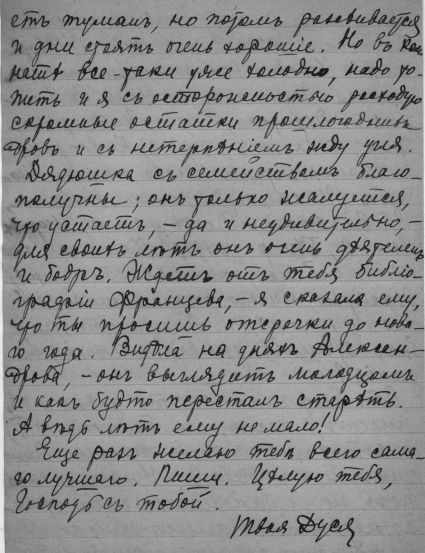 етъ туман, но потомъ разсвивается
и дни стоятъ очень хорошіе. Но въ ком-
натѣ все-таки уже холодно, надо то-
пить и я съ осторожностью расходую
скромные остатки прошлогоднихъ
дровъ и съ нетерпѣніемъ жду угля.
Дядюшка съ семействомъ благо-
получны; онъ только жалуется,
что устаетъ, – да и неудивительно, –
для своихъ лѣтъ онъ очень дѣятеленъ
и бодръ. Ждетъ отъ тебя библіо-
графіи Францева, – я сказала ему,
что ты просишь отсрочки до ново-
го года. Видѣла на дняхъ Алексан-
дрова, – онъ выглядитъ молодцомъ
и какъ будто пересталъ старѣть.
А вѣдь лѣтъ ему не мало!
Еще разъ желаю тебѣ всего сама-
го лучшаго. Пиши. Цѣлую тебя,
Господь съ тобой.
Твоя Дуся